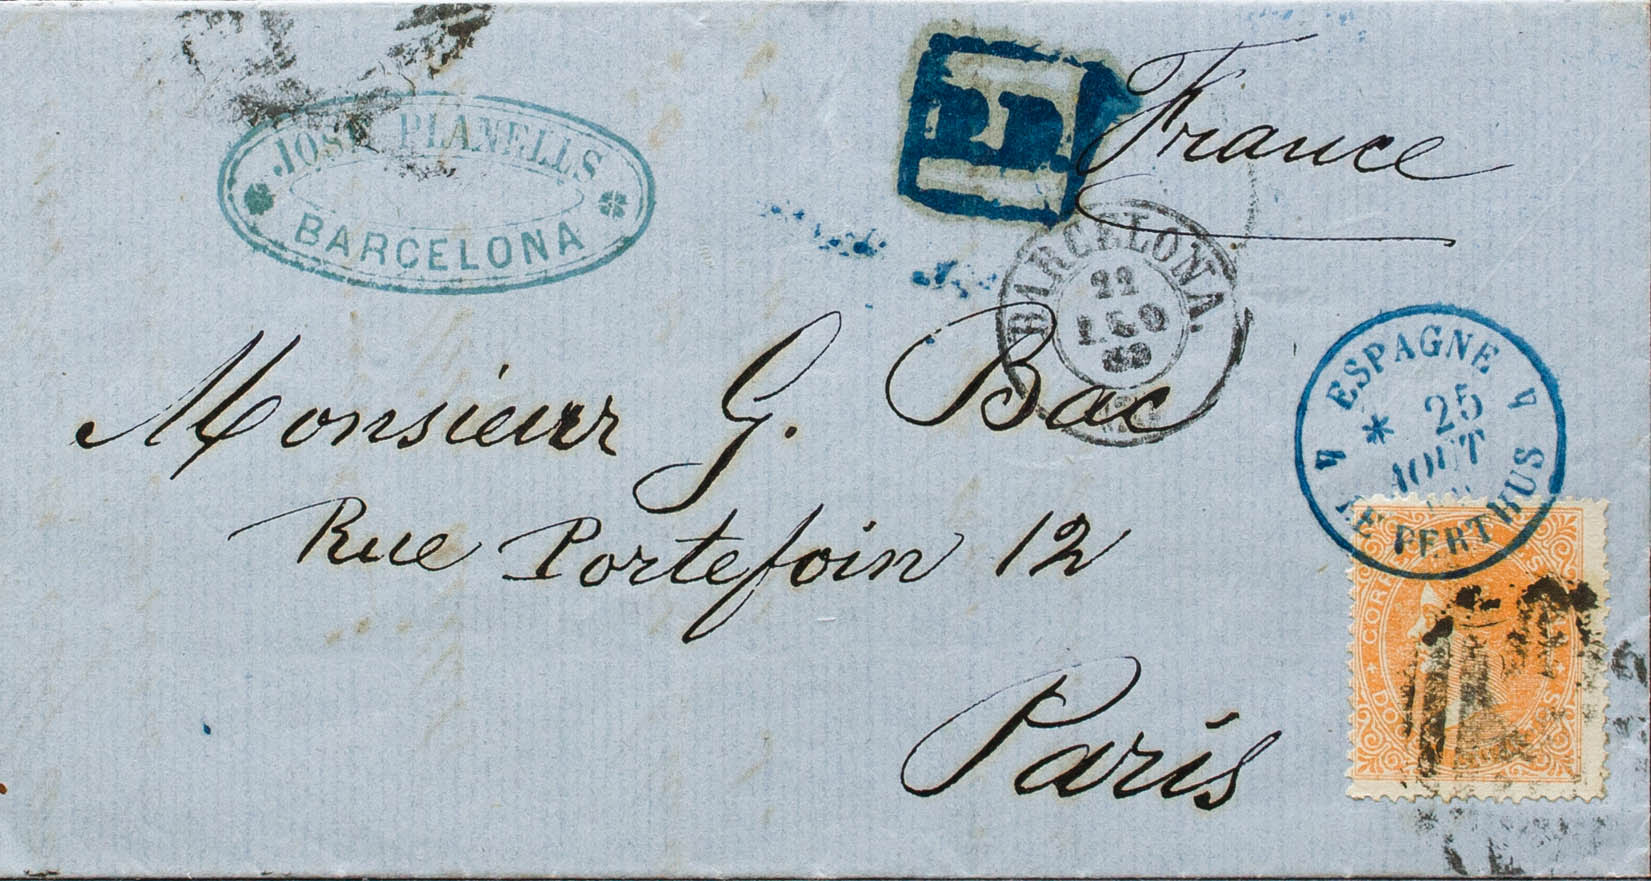 JOSÉ PLANELLS
BARCELONA
P.D.
France
BARCELONA.
22
AGO
Monsieur G. Bac
Rue Portefoin 12
Paris
ESPAGNE
25
AOUT
LE PERTHUS
4 4
CORREOS